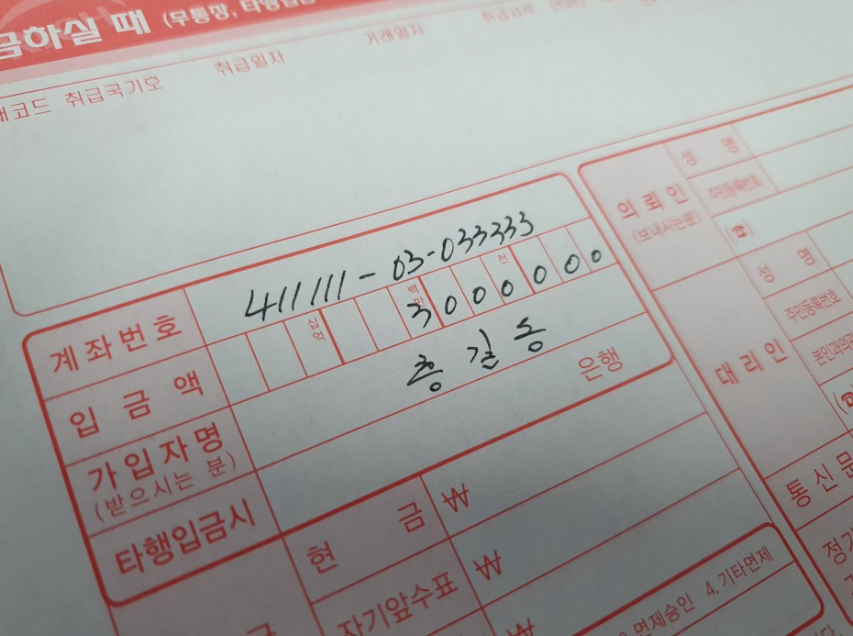 금하실 때 (무통장, 타행입금
취급국기호 취급일자 거래일자
계좌번호 411111-03-033333
십억 백만 천
입금액 3000000
가입자명 홍길동
(받으시는 분)
타행입금시 은행
현금 ₩
자기앞수표 ₩
₩
면제승인 4.기타면제
의뢰인
(보내시는분)
성명
주민등록번호
(☎)
대리인
성명
주민등록번호
(☎)
통신문